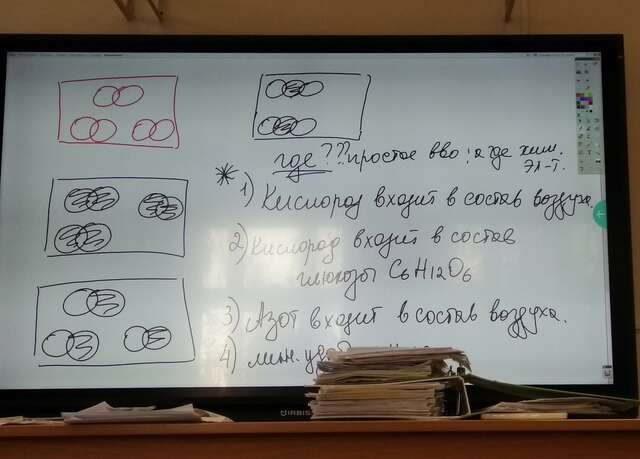 где ??? простое вво! а где хим.
эл-т.
* 1) Кислород входит в состав воздуха
2) Кислород входит в состав
глюкозы C6H12O6
3) Азот входит в состав воздуха.
4)
IRBIS